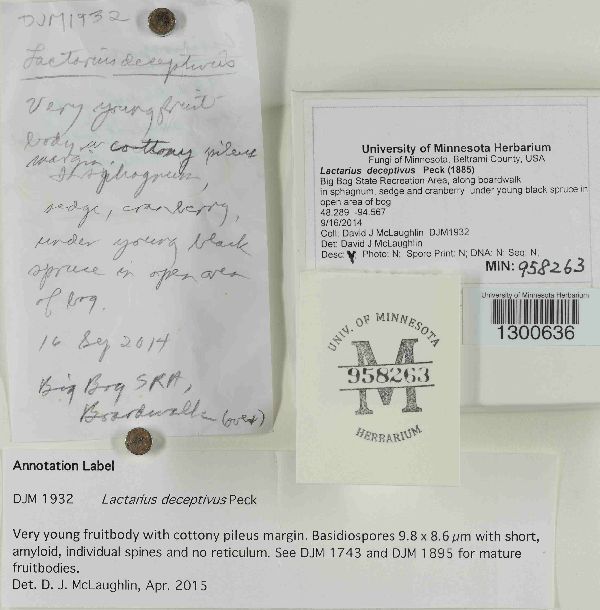 DJM1932
Lactarius deceptivus
Very young fruit
body w cottony pileus
margin.
In sphagnum,
sedge, cranberry,
under young black
spruce in open area
of bog.
16 Sep 2014
Big Bog SRA,
Boardwalk (over)
University of Minnesota Herbarium
Fungi of Minnesota, Beltrami County, USA
Lactarius deceptivus Peck (1885)
Big Bog State Recreation Area, along boardwalk
in sphagnum, sedge and cranberry under young black spruce in
open area of bog
48.289 -94.567
9/16/2014
Coll: David J McLaughlin DJM1932
Det: David J McLaughlin
Desc: Y Photo: N: Spore Print: N; DNA: N: Seq: N,
MIN: 958263
University of Minnesota Herbarium
1300636
UNIV. OF MINNESOTA
M
958263
HERBARIUM
Annotation Label
DJM 1932 Lactarius deceptivus Peck
Very young fruitbody with cottony pileus margin. Basidiospores 9.8 x 8.6 µm with short,
amyloid, individual spines and no reticulum. See DJM 1743 and DJM 1895 for mature
fruitbodies.
Det. D. J. McLaughlin, Apr. 2015